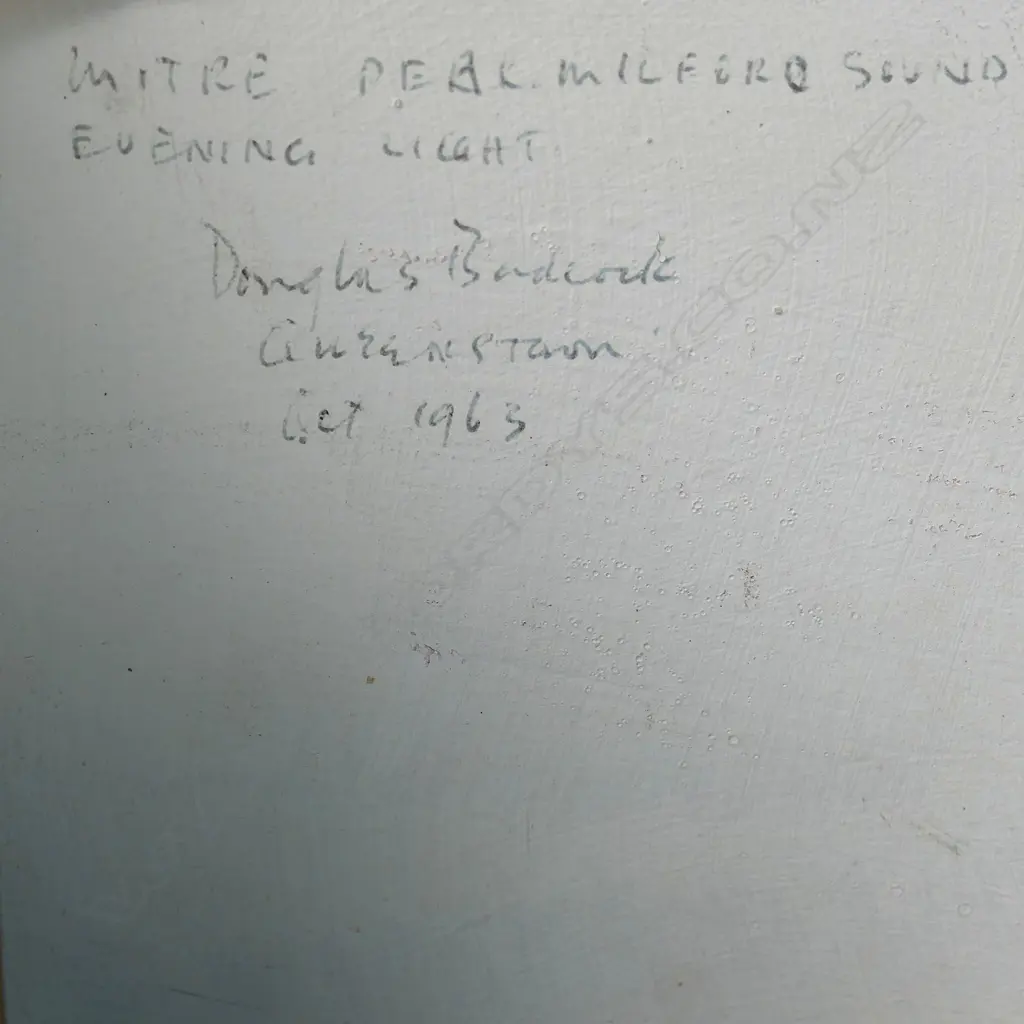 MITRE PEAK. MILFORD SOUND
EVENING LIGHT.
Douglas Badcock
Queenstown
Oct 1963